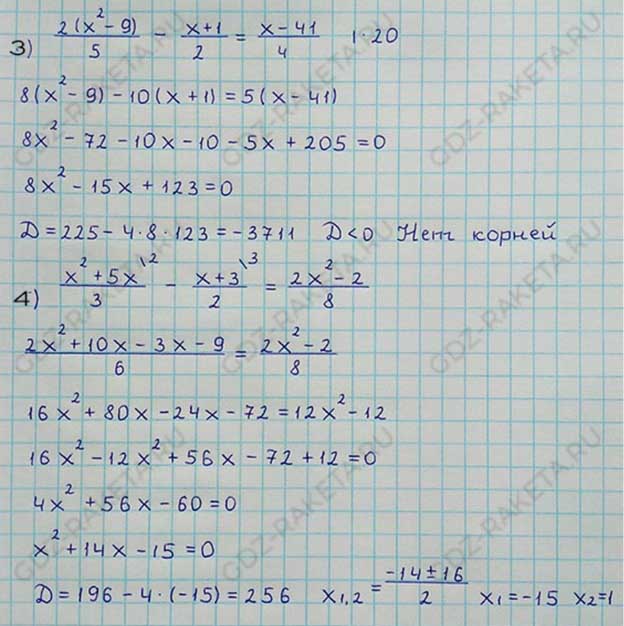 3) 2(x²-9)/5 - x+1/2 = x-41/4 |·20
8(x²-9)-10(x+1)=5(x-41)
8x²-72-10x-10-5x+205=0
8x²-15x+123=0
Д=225-4·8·123=-3711 Д<0 Нет корней
4) x²+5x\2/3 - x+3\3/2 = 2x²-2/8
2x²+10x-3x-9/6 = 2x²-2/8
16x²+80x-24x-72=12x²-12
16x²-12x²+56x-72+12=0
4x²+56x-60=0
x²+14x-15=0
Д=196-4·(-15)=256 x1,2 = -14±16/2 x1=-15 x2=1
GDZ-RAKETA.RU